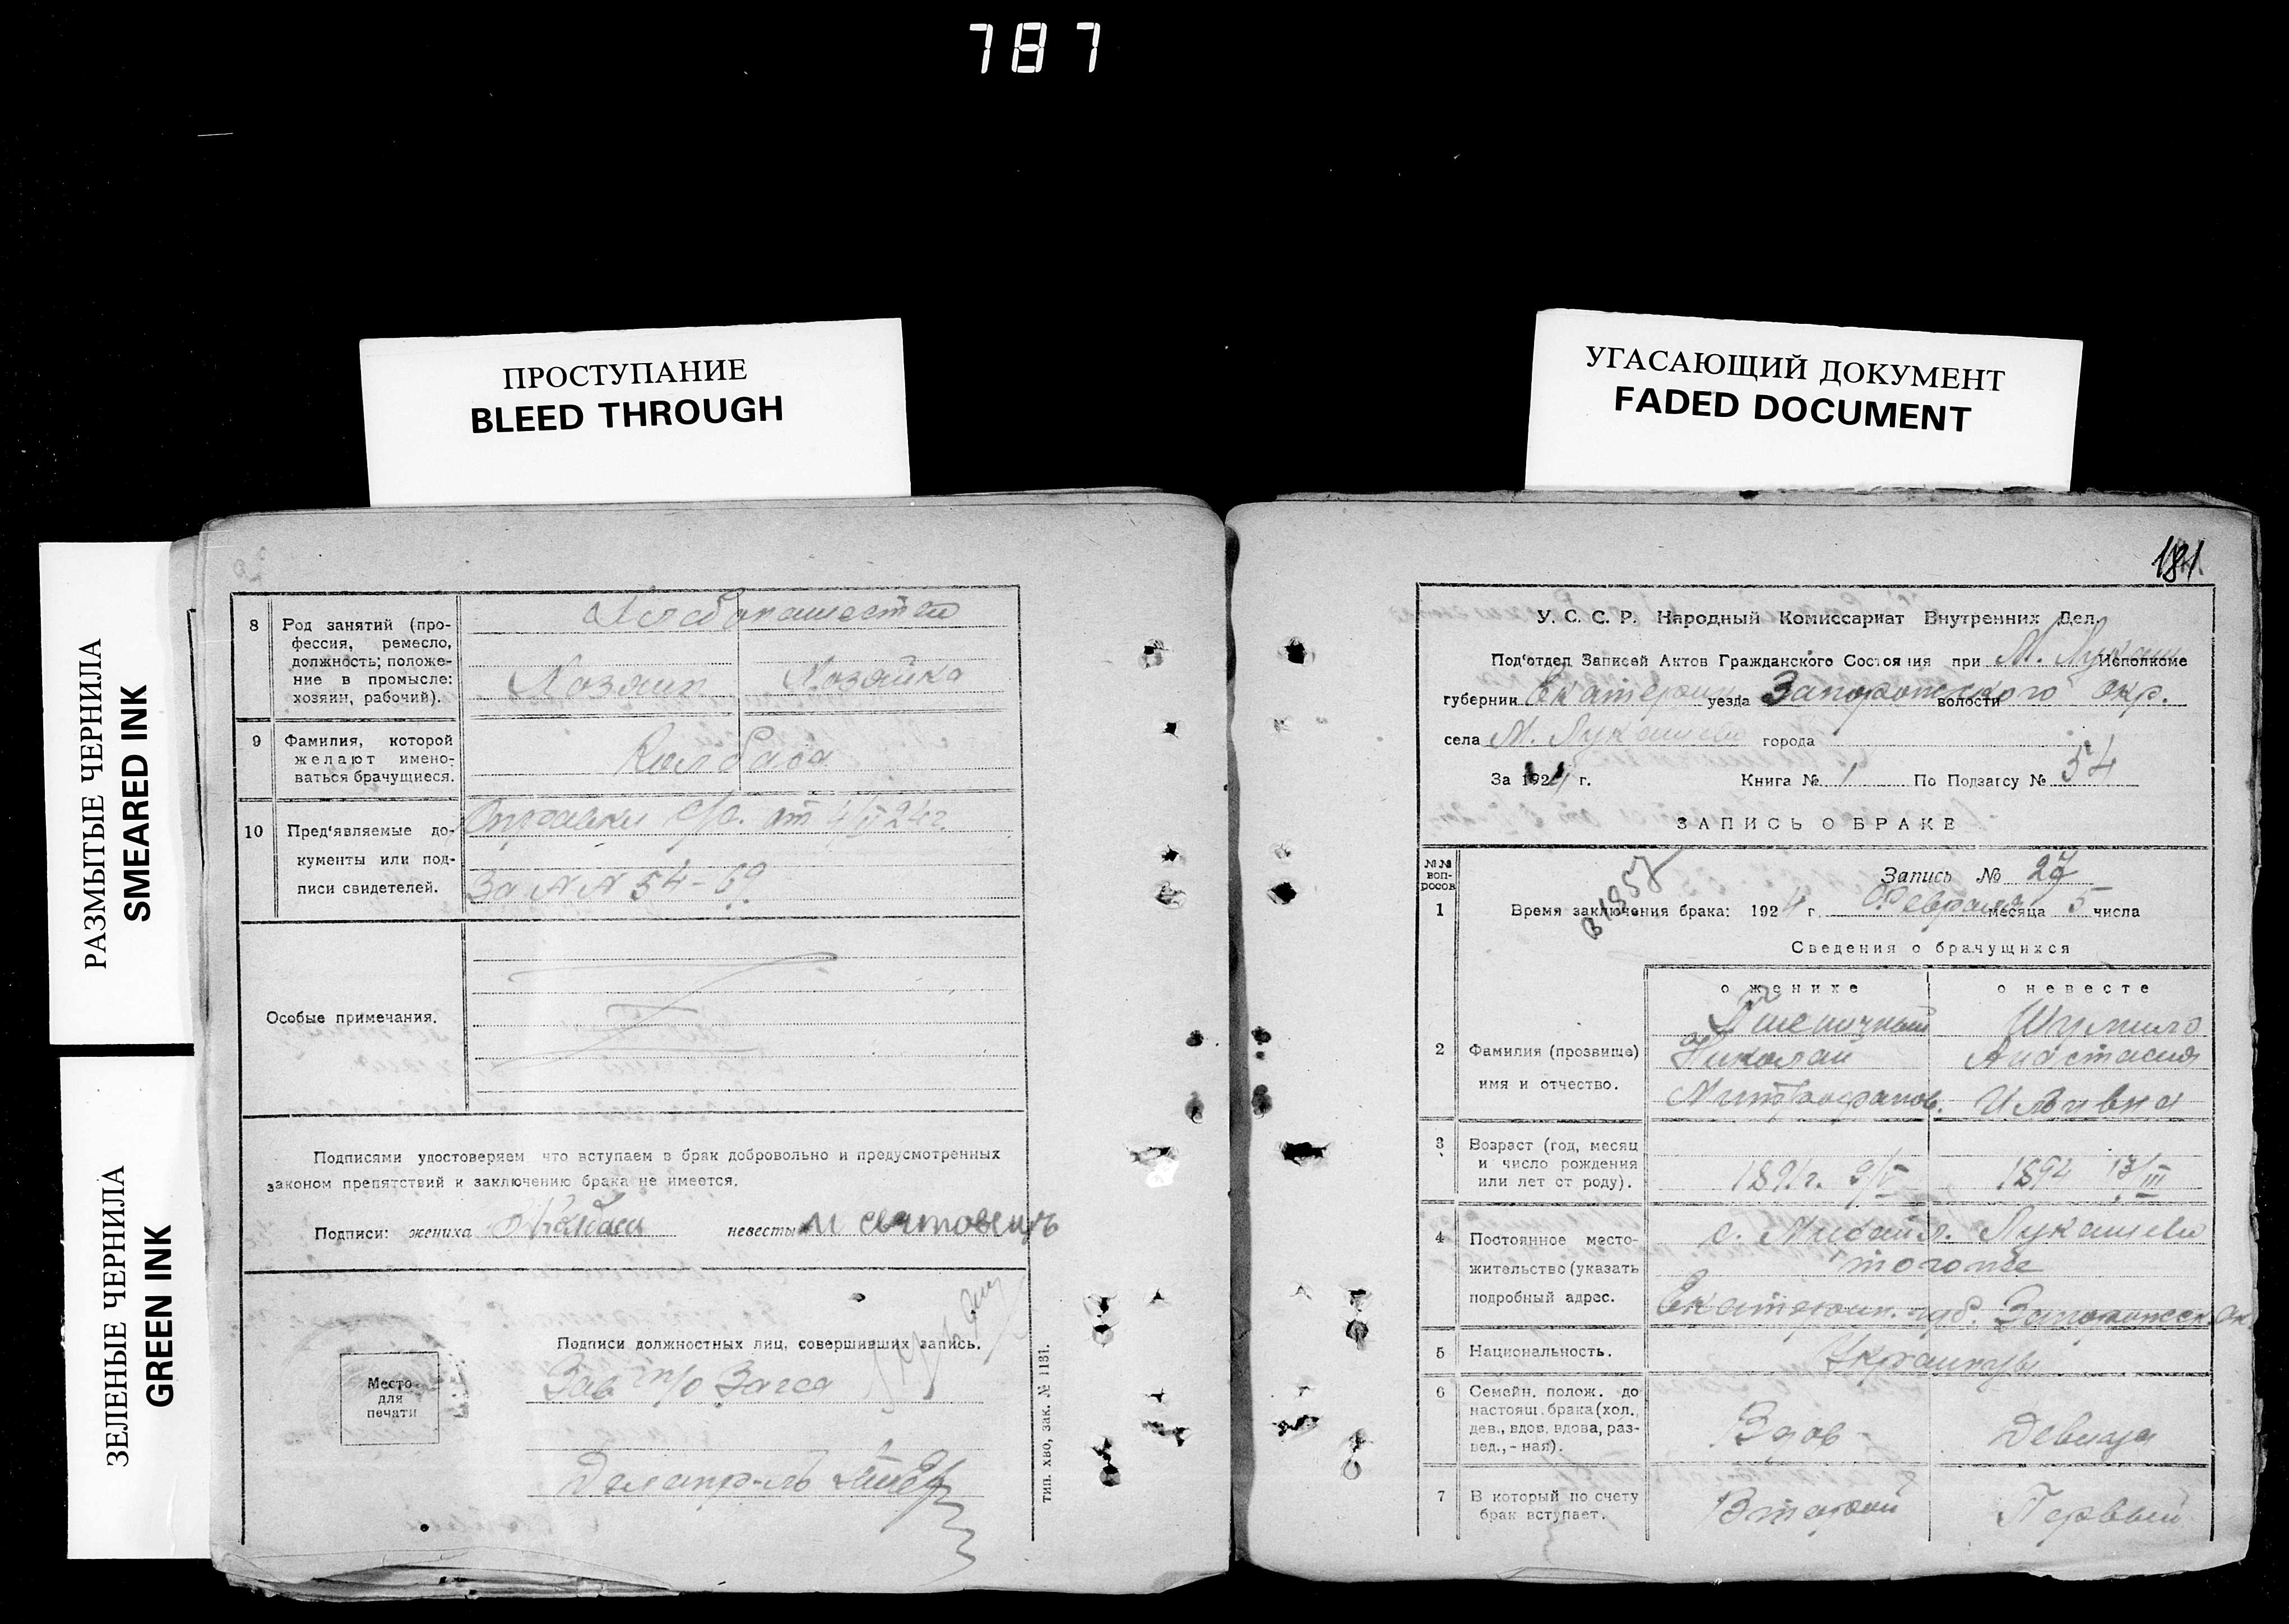 787
ПРОСТУПАНИЕ
BLEED THROUGH
УГАСАЮЩИЙ ДОКУМЕНТ
FADED DOCUMENT
РАЗМЫТЫЕ ЧЕРНИЛА
SMEARED INK
ЗЕЛЕНЫЕ ЧЕРНИЛА
GREEN INK
8 Род занятий (про-
фессия, ремесло,
должность; положе-
ние в промысле:
хозяин, рабочий).
Хлебопашество
Хозяин Хозяйка
9 Фамилия, которой
желают имено-
ваться брачущиеся.
Колбаса
10 Пред'явлаемые до-
кументы или под-
писи свидетелей.
Справки с/с. от 4/II 24 г.
За NN 54 -
Особые примечания.
Подписями удостоверяем что вступаем в брак добровольно и предусмотренных
законом препятствий к заключению брака не имеется.
Подписи: жениха Колбаса невесты
Подписи должностных лиц, совершивших запись.
Зав п/о Загса
Делопр-ль
Место
для
печати
тип. хво, зак. № 1131.
181
У. С. С. Р. Народный Комиссариат Внутренних Дел.
Под'отдел Записей Актов Гражданского Состояния при М. Лукаш Исполкоме
губернии Екатерин уезда Запорожского волости окр.
села М. Лукашево города
За 1924 г. Книга № 1 По Подзагсу № 54
ЗАПИСЬ О БРАКЕ
№№
воп-
росов
Запись № 27
1 Время заключения брака: 1924 г. Февраля месяца 5 числа
Сведения о брачущихся
о женихе о невесте
2 Фамилия (прозвище)
имя и отчество.
Пшеничный Шумило
Николай Анастасия
Митрофанов. Ильивна
3 Возраст (год, месяц
и число рождения
или лет от роду).
1892 13/III
4 Постоянное место-
жительство (указать
подробный адрес.
с. Михайл. Лукашево
тогоже
Екатерин. губ. Запорожск. Ок.
5 Национальность.
Украинцы
6 Семейн. полож. до
настоящ. брака (хол.,
дев., вдов, вдова, раз-
вед., - ная).
Вдов - Девица
7 В который по счету
брак вступает.
Второй Первый